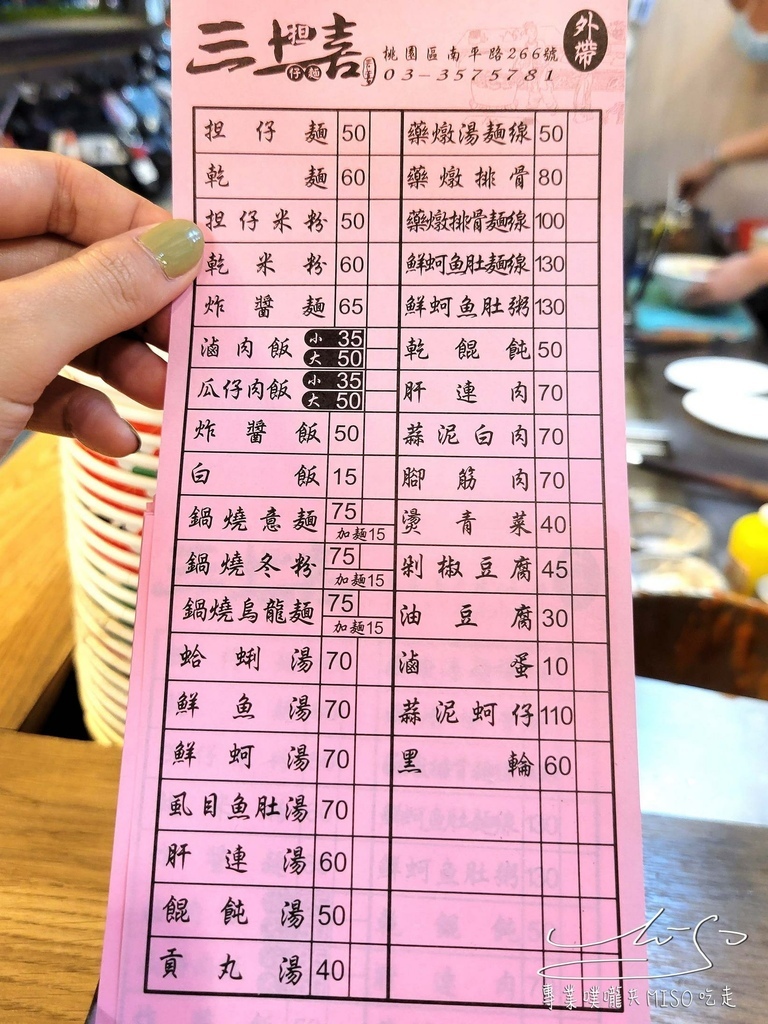 三上喜
担仔麵
外帶
桃園區南平路266號
03-3575781
担仔麵 50
乾麵 60
担仔米粉 50
乾米粉 60
炸醬麵 65
滷肉飯 小 35
大 50
瓜仔肉飯 小 35
大 50
炸醬飯 50
白飯 15
鍋燒意麵 75
加麵15
鍋燒冬粉 75
加麵15
鍋燒烏龍麵 75
加麵15
蛤蜊湯 70
鮮魚湯 70
鮮蚵湯 70
虱目魚肚湯 70
肝連湯 60
餛飩湯 50
貢丸湯 40
藥燉湯麵線 50
藥燉排骨 80
藥燉排骨麵線 100
鮮蚵魚肚麵線 130
鮮蚵魚肚粥 130
乾餛飩 50
肝連肉 70
蒜泥白肉 70
腳筋肉 70
燙青菜 40
剁椒豆腐 45
油豆腐 30
滷蛋 10
蒜泥蚵仔 110
黑輪 60
MISO
專業噗嚨共MISO吃走